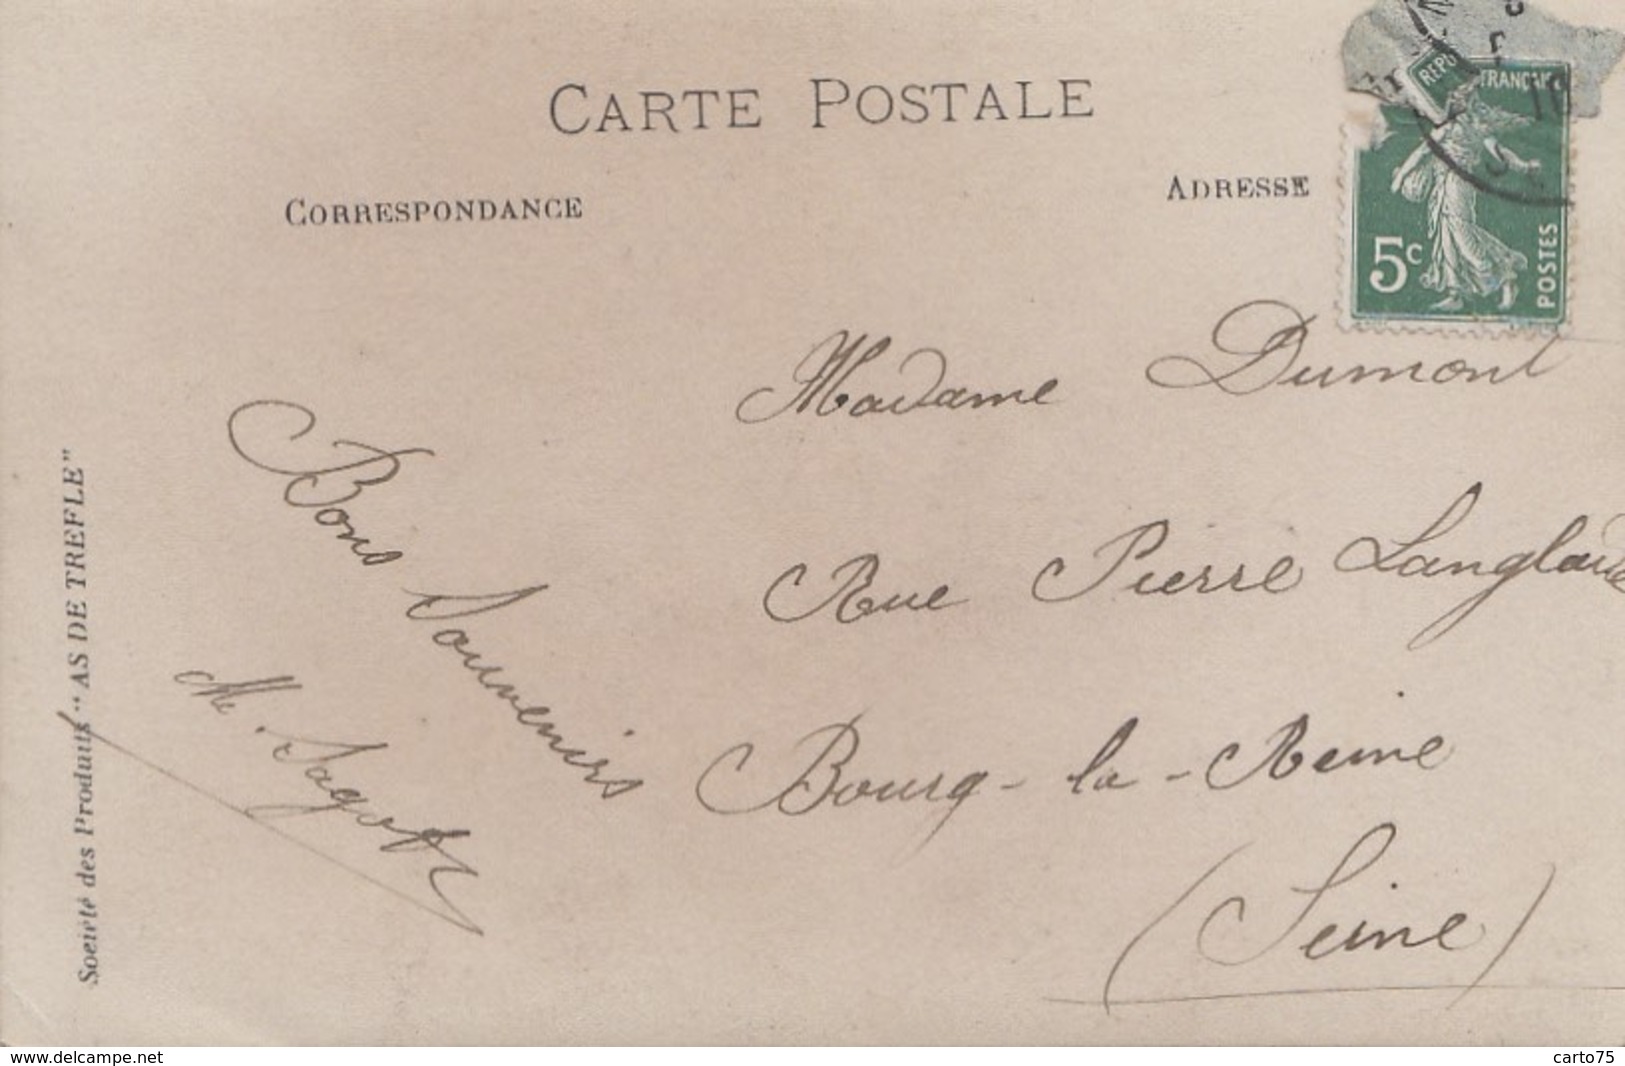 CARTE POSTALE
CORRESPONDANCE
ADRESSE
FRANÇAISE
5c
POSTES
Madame Dumont
Rue Pierre Langlade
Bourg-la-Reine
(Seine)
Bons Souvenirs
M. Sagot
Société des Produits "AS DE TREFLE"
www.delcampe.net
carto75